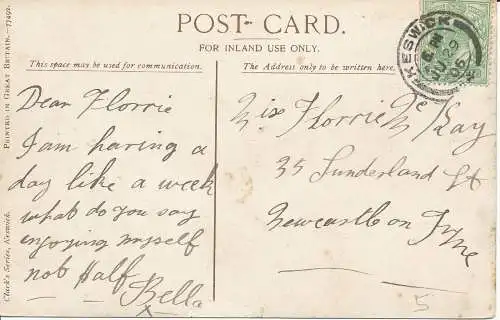 POST CARD.
FOR INLAND USE ONLY.
This space may be used for communication.
The Address only to be written here.
PRINTED IN GREAT BRITAIN.—77492.
Clark's Series, Keswick.
KESWICK
06
Dear Florrie
I am having a
day like a week
what do you say
enjoying myself
not Half
Bella
x
Miss Florrie Mc Kay
35 Sunderland St
Newcastle on Tyne
5